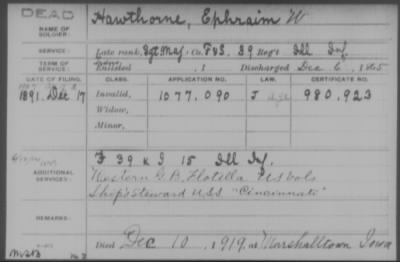 DEAD
NAME OF SOLDIER: Hawthorne, Ephraim W
SERVICE: Late rank, Sgt Maj, Co. F&S, 39 Reg't Ill Inf.
TERM OF SERVICE: Enlisted , 1 Discharged Dec 6, 1865
DATE OF FILING. CLASS. APPLICATION NO. LAW. CERTIFICATE NO.
1891 Dec 17 Invalid, 1077.090 J 980.923
Widow,
Minor,
ADDITIONAL SERVICES: F 39 & I 15 Ill Inf.
Western G.B. Flotilla US Vols
Ship's Steward U.S.S. "Cincinnati"
REMARKS:
Died Dec 10, 1919, at Marshalltown Iowa